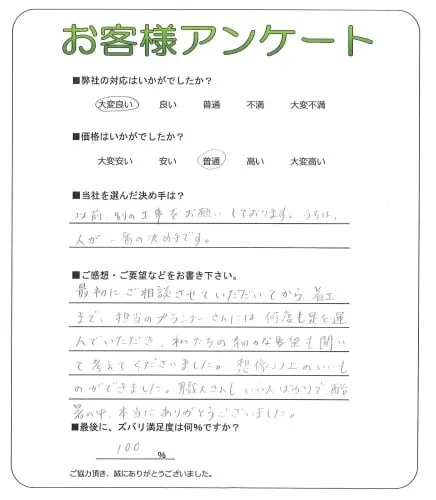 お客様アンケート
■弊社の対応はいかがでしたか?
大変良い 良い 普通 不満 大変不満
■価格はいかがでしたか?
大変安い 安い 普通 高い 大変高い
■当社を選んだ決め手は?
以前、別の工事をお願いしております。うちは、
人が一番の決め手です。
■ご感想・ご要望などをお書き下さい。
最初にご相談させていただいてから、着工
まで、担当のプランナーさんには何度も足を運
んでいただき、私たちの細かな要望も聞い
て考えてくださいました。想像以上のいいも
のができました。職人さんもいい人ばかりで酷
暑の中、本当にありがとうございました。
■最後に、ズバリ満足度は何%ですか?
100 %
ご協力頂き、誠にありがとうございました。